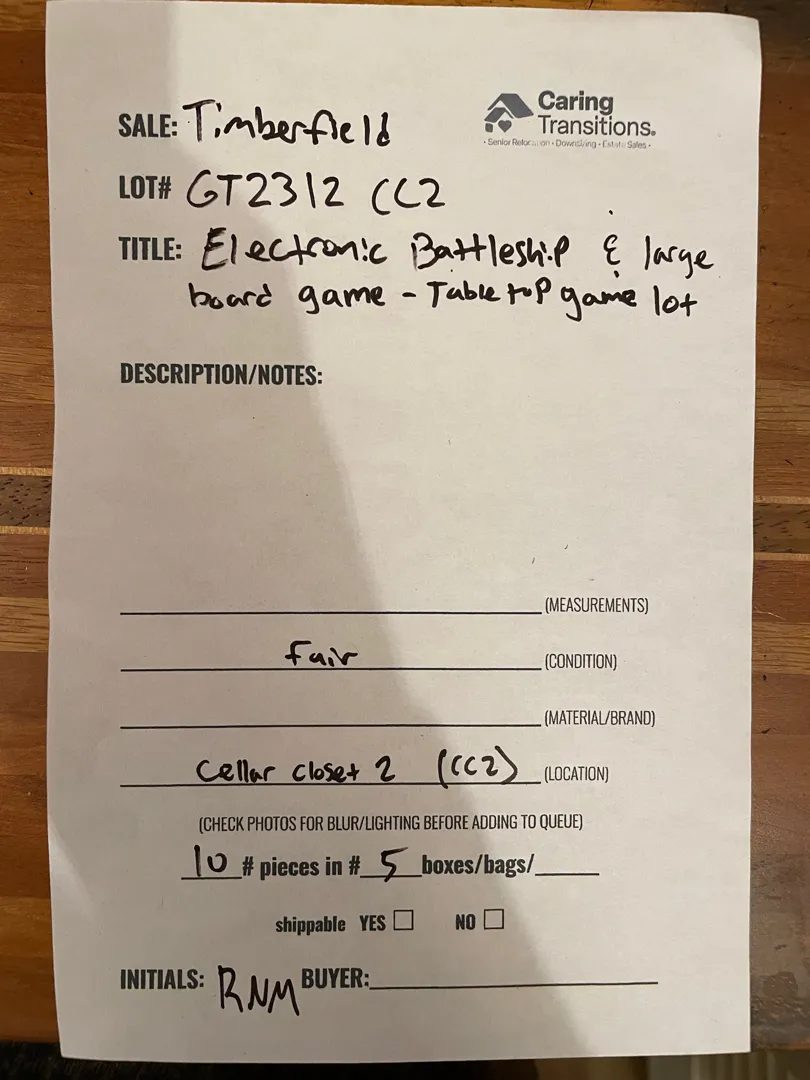 Caring
Transitions.
• Senior Relocation • Downsizing • Estate Sales •
SALE: Timberfield
LOT# GT2312 CC2
TITLE: Electronic Battleship & large
board game - Tabletop game lot
DESCRIPTION/NOTES:
(MEASUREMENTS)
fair (CONDITION)
(MATERIAL/BRAND)
Cellar closet 2 (CC2) (LOCATION)
(CHECK PHOTOS FOR BLUR/LIGHTING BEFORE ADDING TO QUEUE)
10 # pieces in # 5 boxes/bags/
shippable YES ☐ NO ☐
INITIALS: RNM BUYER: